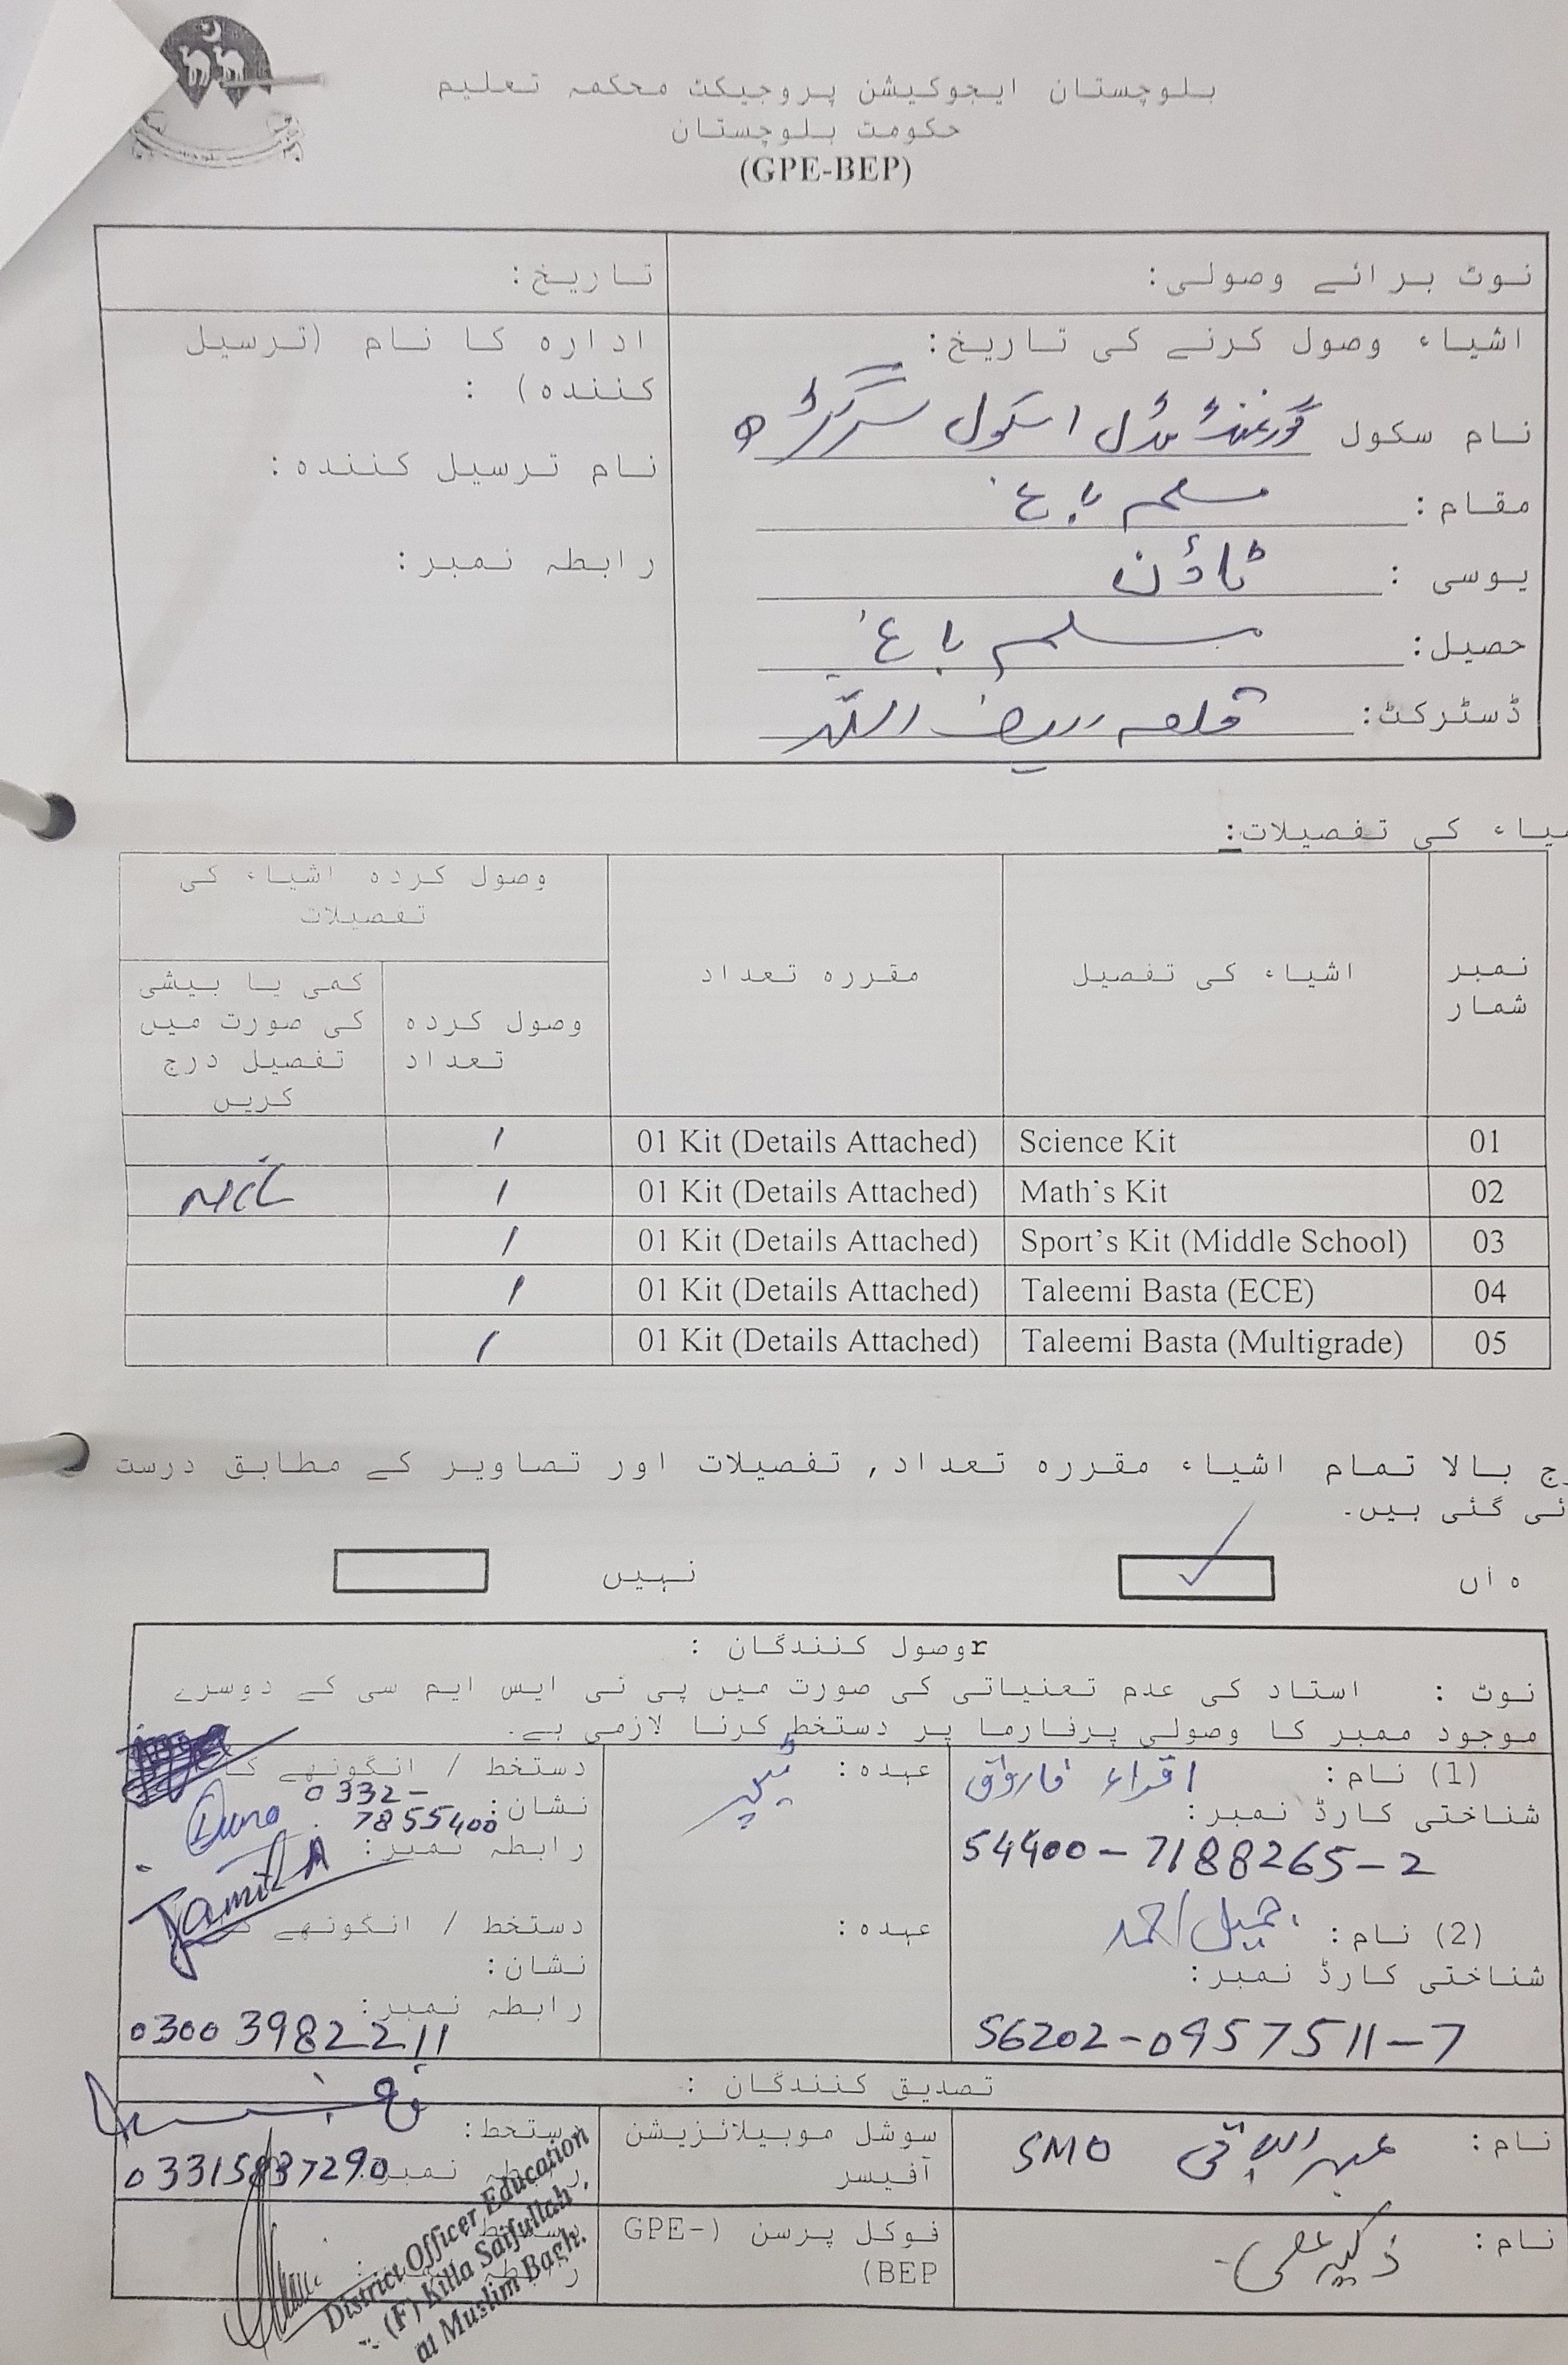 بلوچستان ایجوکیشن پروجیکٹ محکمہ تعلیم
حکومت بلوچستان
(GPE-BEP)
نوٹ برائے وصولی:
تاریخ:
اشیاء وصول کرنے کی تاریخ:
نام سکول گورنمنٹ مڈل اسکول
مقام: مسلم باغ
یوسی : ٹاؤن
حصیل: مسلم باغ
ڈسٹرکٹ: قلعہ سیف اللہ
ادارہ کا نام (ترسیل
کنندہ) :
نام ترسیل کنندہ:
رابطہ نمبر:
یاء کی تفصیلات:
نمبر شمار
اشیاء کی تفصیل
مقررہ تعداد
وصول کردہ اشیاء کی تفصیلات
وصول کردہ تعداد
کمی یا بیشی کی صورت میں تفصیل درج کریں
01 Science Kit 01 Kit (Details Attached) 1
02 Math's Kit 01 Kit (Details Attached) 1 NIL
03 Sport's Kit (Middle School) 01 Kit (Details Attached) 1
04 Taleemi Basta (ECE) 01 Kit (Details Attached) 1
05 Taleemi Basta (Multigrade) 01 Kit (Details Attached) 1
ج بالا تمام اشیاء مقررہ تعداد, تفصیلات اور تصاویر کے مطابق درست
ئی گئی ہیں۔
ہاں ✓
نہیں
rوصول کنندگان :
نوٹ : استاد کی عدم تعنیاتی کی صورت میں پی ٹی ایس ایم سی کے دوسرے
موجود ممبر کا وصولی پرفارما پر دستخط کرنا لازمی ہے۔
(1) نام: اقراء فاروق
شناختی کارڈ نمبر:
54400-7188265-2
عہدہ: ٹیچر
دستخط / انگوٹھے کا
نشان: 0332-
7855400
رابطہ نمبر:
Jamil A
(2) نام: جمیل احمد
شناختی کارڈ نمبر:
56202-0957511-7
عہدہ:
دستخط / انگوٹھے
نشان:
رابطہ نمبر:
03003982211
تصدیق کنندگان :
نام: عبدالباقی SMO
سوشل موبیلائزیشن
آفیسر
ستخط:
نمبر: 03315837290
نام:
فوکل پرسن (GPE-
BEP)
District Officer Education
(F) Killa Saifullah
at Muslim Bagh.